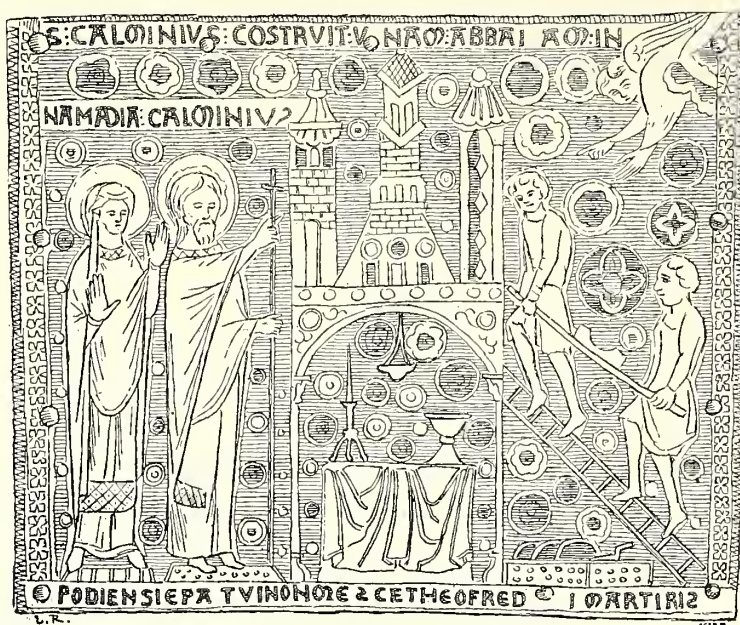 S: CALMINIVS: COSTRVIT: V NAM: ABBAI AM: IN
NAMADIA: CALMINIVS
PODIENSI EPA TVINONOIE SCE THEOFRED I MARTIRIS
L.R.